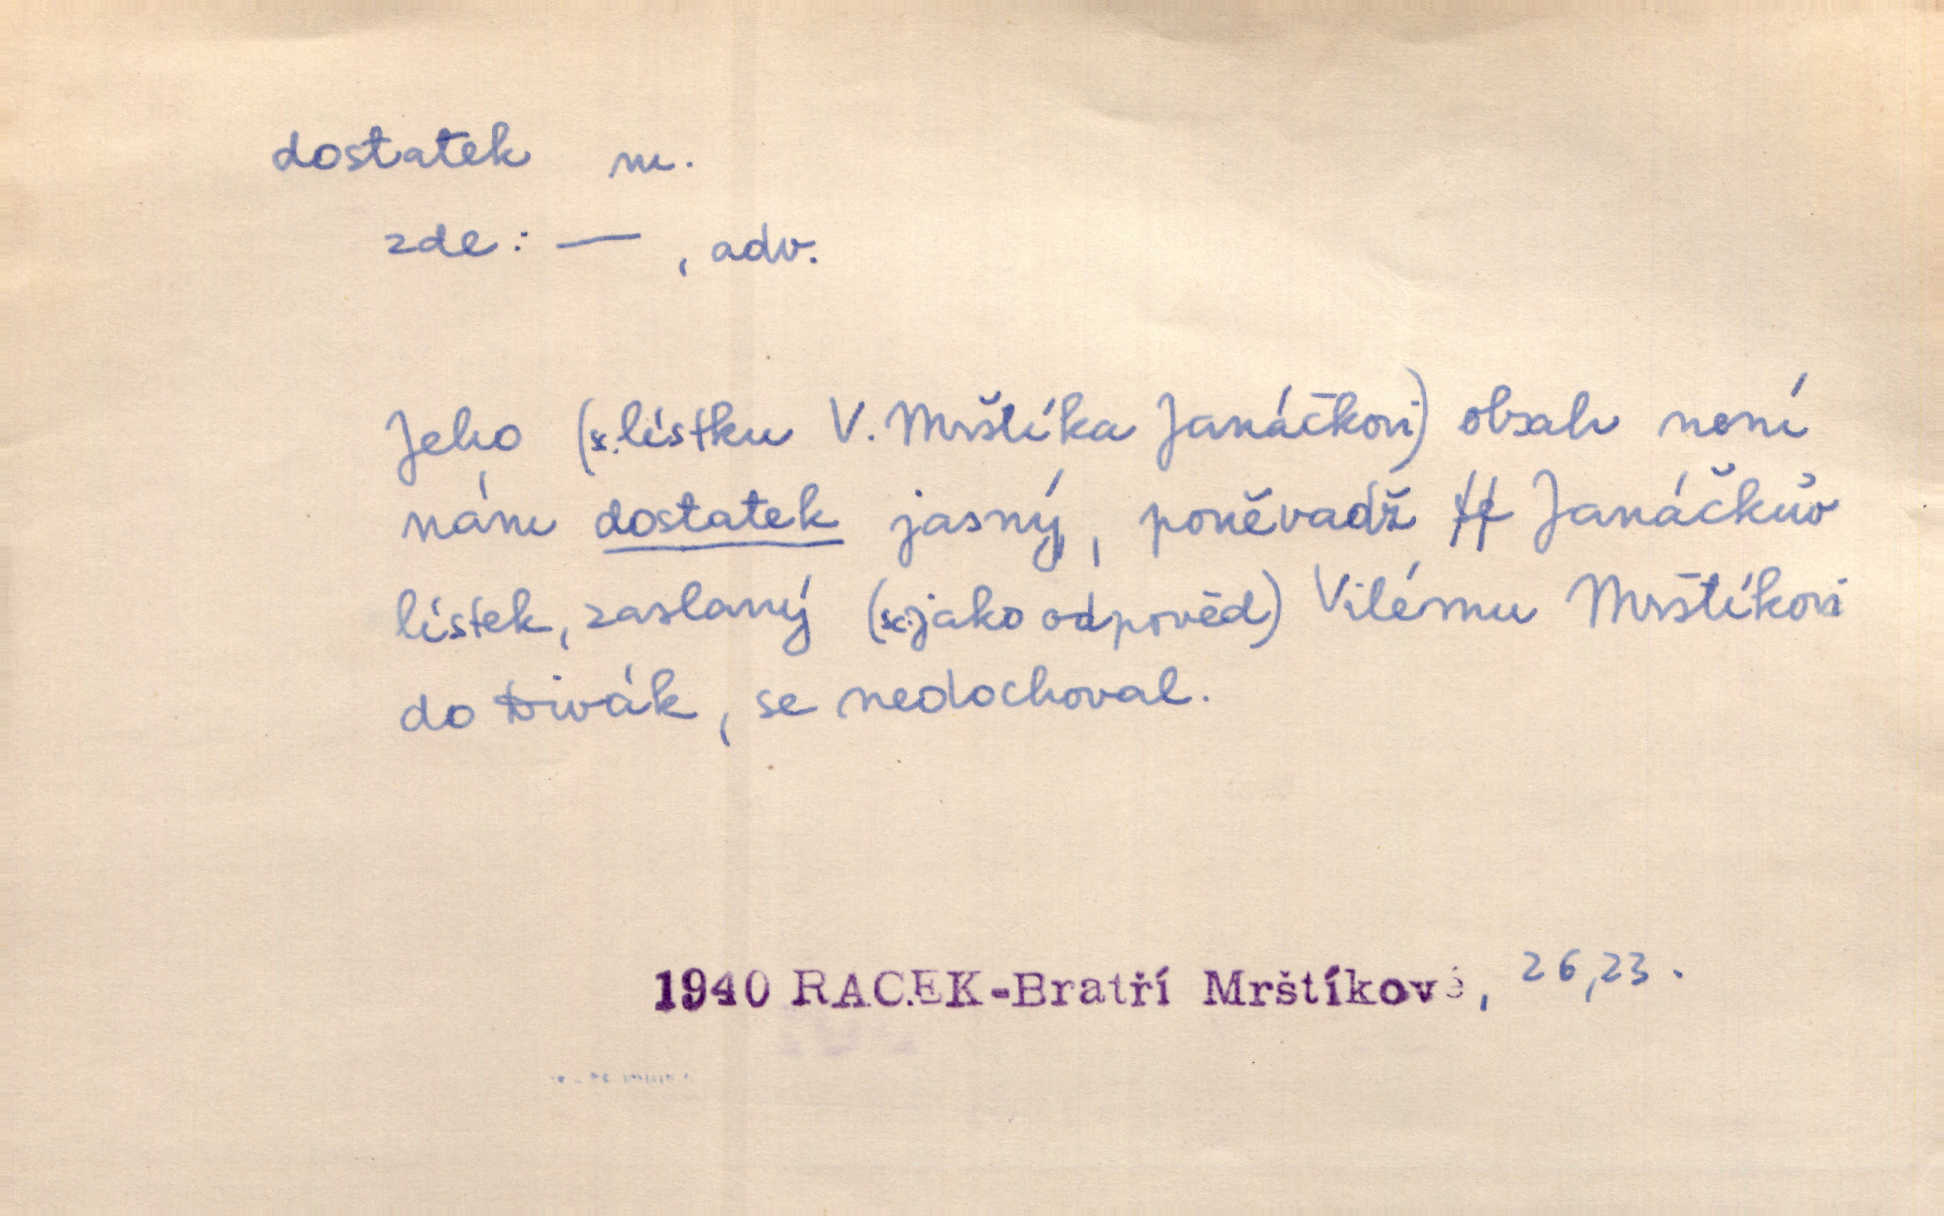 dostatek m.
zde: — , adv.
Jeho (s. lístku V. Mrštíka Janáčkovi) obsah není
nám dostatek jasný, poněvadž Janáčkův
lístek, zaslaný (sc. jako odpověd) Vilému Mrštíkovi
do Divák, se nedochoval.
1940 RACEK-Bratří Mrštíkové, 26,23.